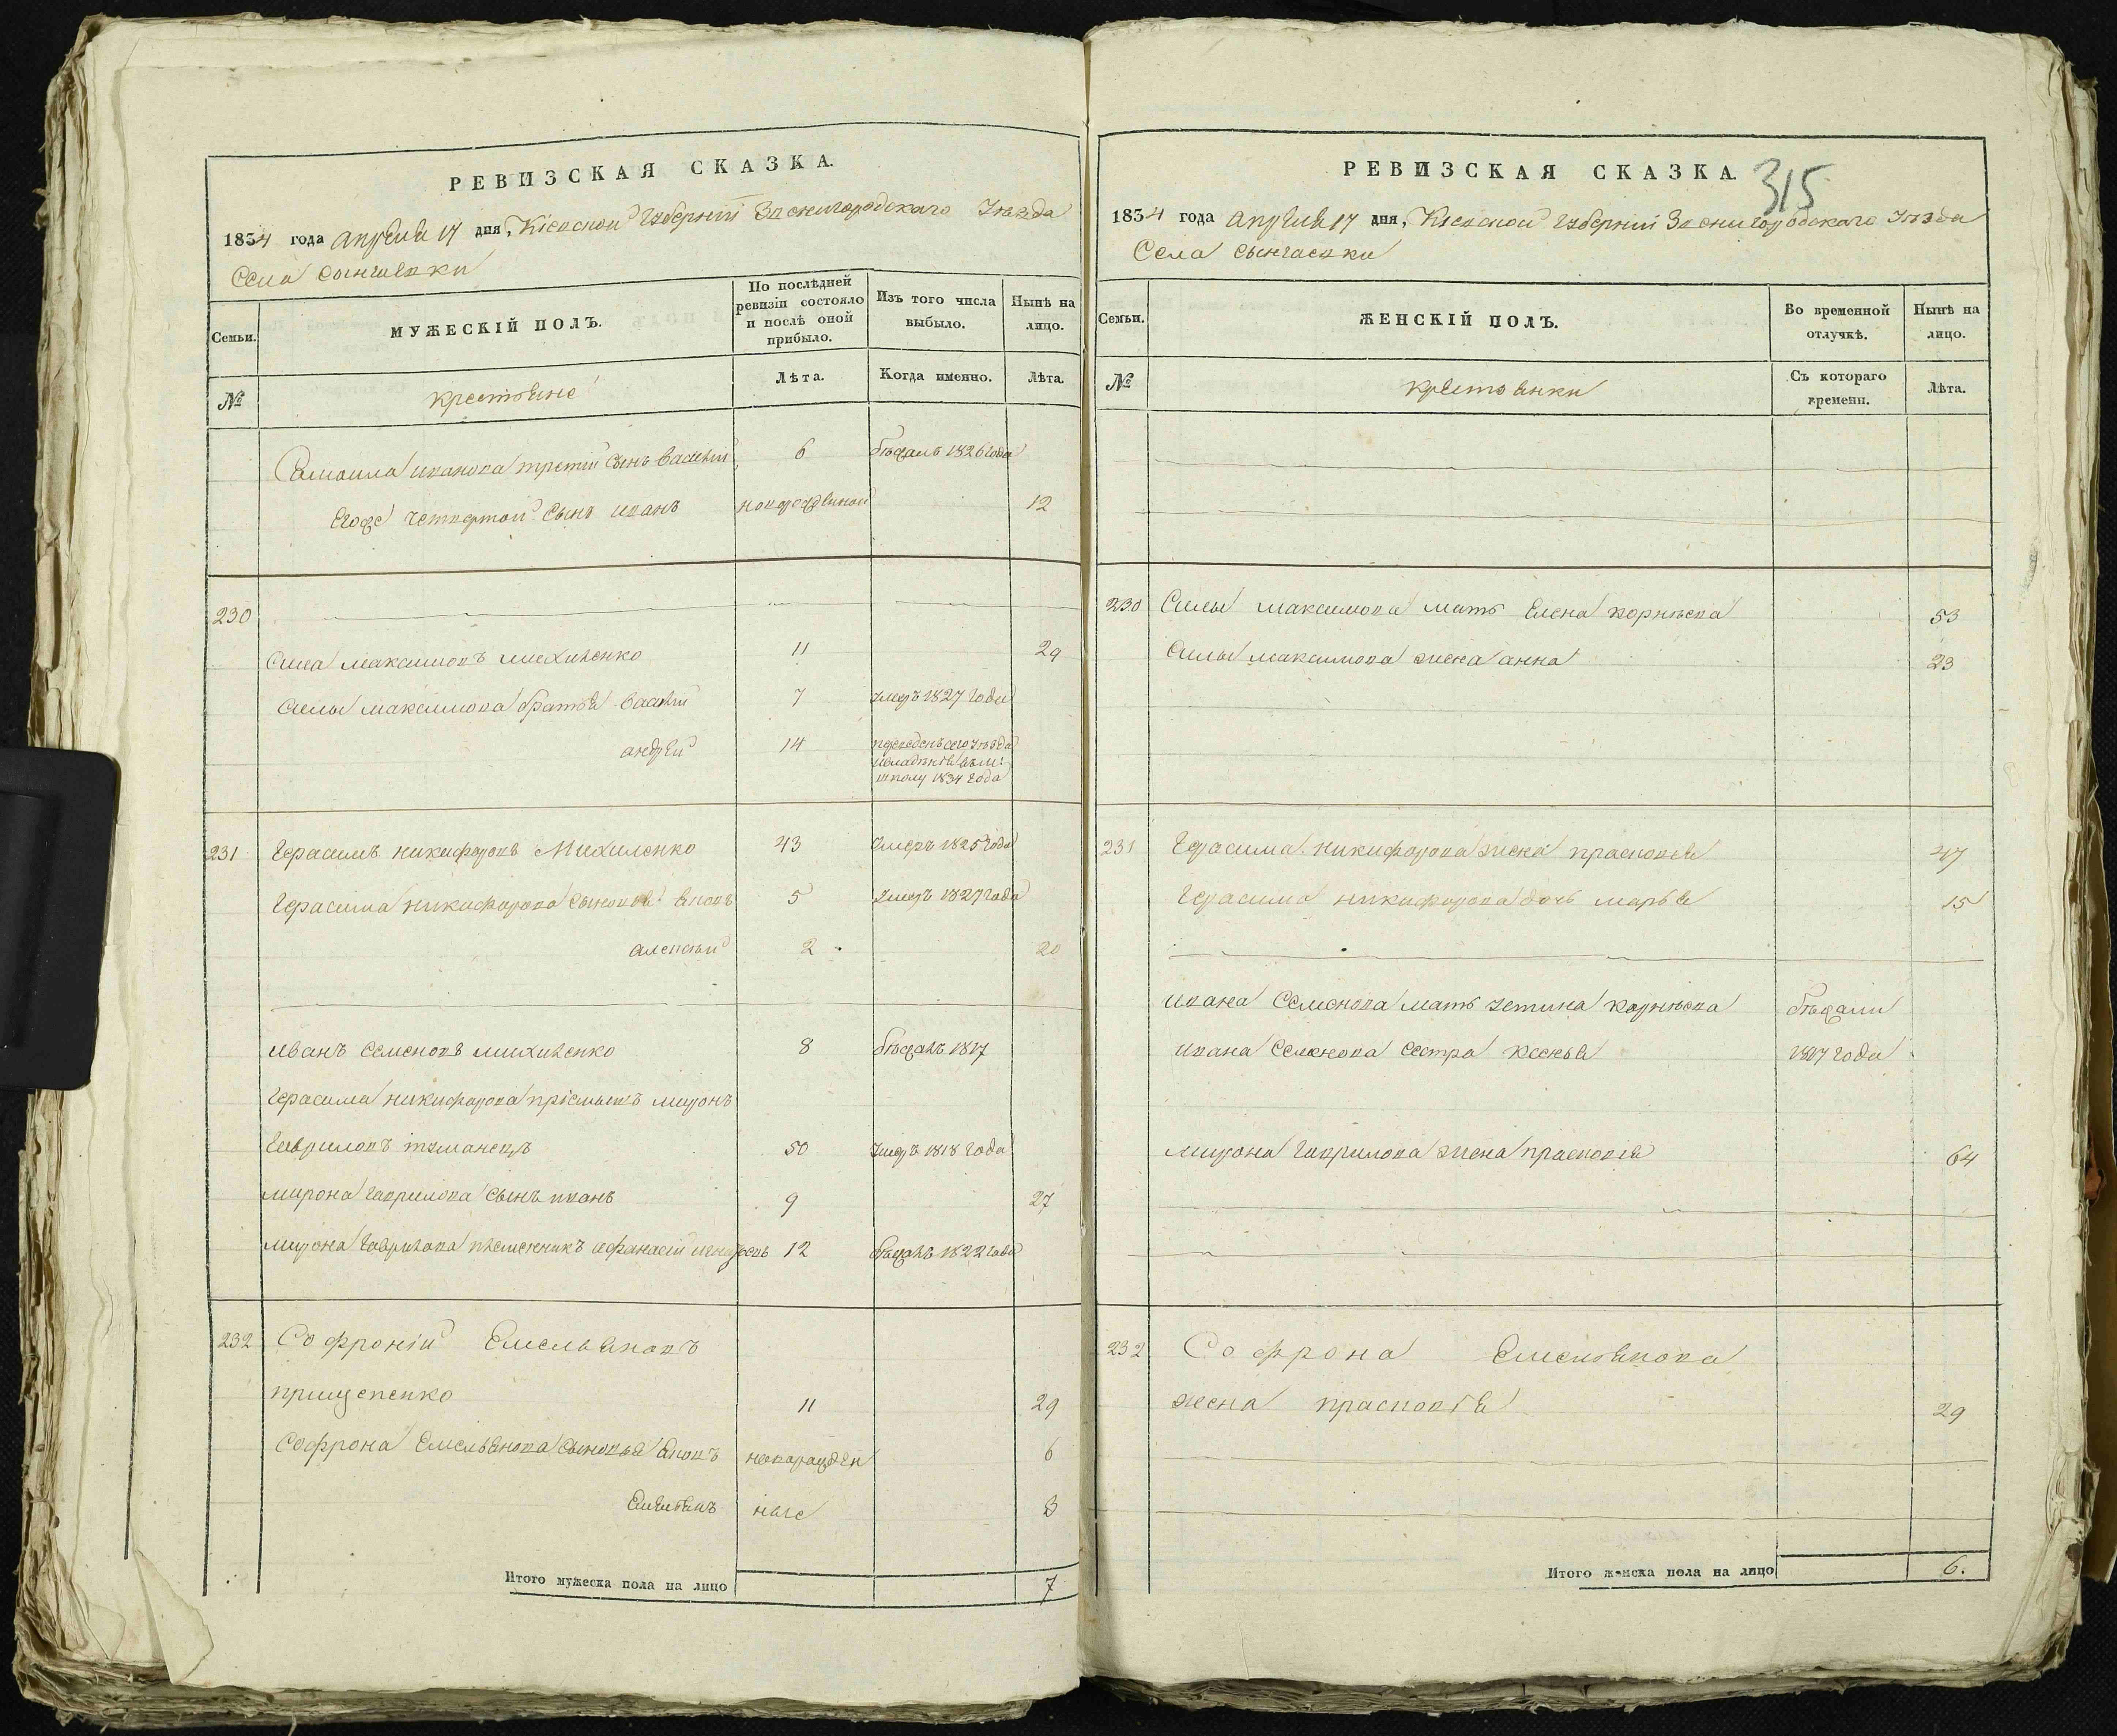 РЕВИЗСКАЯ СКАЗКА.
1834 года апреля 17 дня, Кіевской губерніи Звенигородскаго Уѣзда
Села
Семьи.
МУЖЕСКІЙ ПОЛЪ.
По послѣдней ревизіи состояло и послѣ оной прибыло.
Изъ того числа выбыло.
Нынѣ на лицо.
№
крестьяне
Лѣта.
Когда именно.
Лѣта.
Самоила иванова третій сынъ василій 6 бѣжалъ 1826 года
Егоже четвертой сынъ иванъ новорожденой 12
230
Сила максимовъ михиленко 11 29
Силы максимова братья василій 7 умеръ 1827 года
андрей 14 переведенъ сего уѣзда
1834 года
231 Герасимъ никифоровъ Михиленко 43 умеръ 1825 года
Герасима никифорова сыновья яковъ 5 умеръ 1827 года
алексѣй 2 20
Иванъ семеновъ михиленко 8 бѣжалъ 1817
Герасима никифорова пріемышъ миронъ
гавриловъ 50 умеръ 1818 года
мирона гаврилова сынъ иванъ 9 27
мирона гаврилова племенникъ афанасій 12 бѣжалъ 1822 года
232 Софроній Емельяновъ
прищепенко 11 29
Софрона Емельянова сыновья яковъ новорожден 6
Емельянъ ные 3
Итого мужеска пола на лицо 7
РЕВИЗСКАЯ СКАЗКА.
315
1834 года апреля 17 дня, Кіевской губерніи Звенигородскаго Уѣзда
Села
Семьи.
ЖЕНСКІЙ ПОЛЪ.
Во временной отлучкѣ.
Нынѣ на лицо.
№
крестьянки
Съ котораго времени.
Лѣта.
230 Силы максимова мать Елена корнѣева 53
Силы максимова жена анна 23
231 Герасима никифорова жена прасковья 47
Герасима никифорова дочь марья 15
ивана Семенова мать устина корнѣева бѣжали
ивана Семенова сестра ксенья 1817 года
мирона гаврилова жена прасковія 64
232 Софрона Емельянова
жена прасковія 29
Итого женска пола на лицо 6.